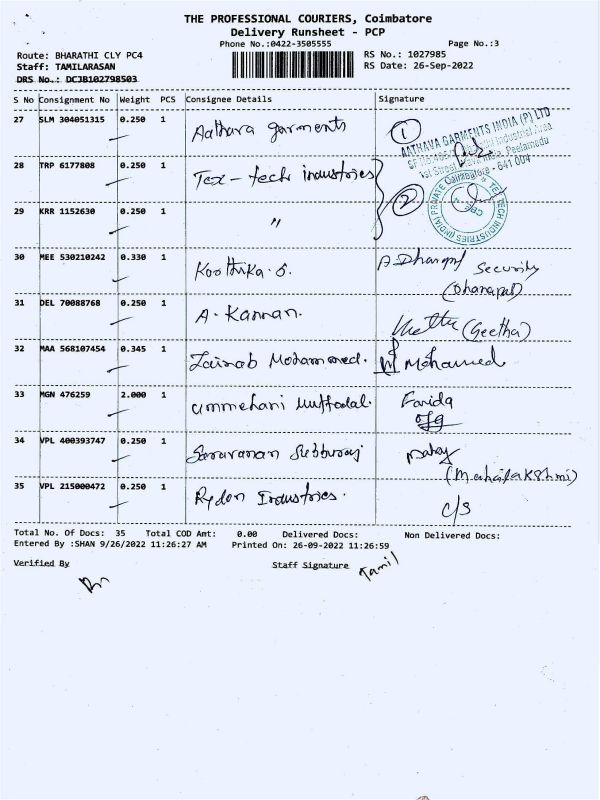 THE PROFESSIONAL COURIERS, Coimbatore
Delivery Runsheet - PCP
Phone No.:0422-3505555
Page No.:3
Route: BHARATHI CLY PC4
RS No.: 1027985
Staff: TAMILARASAN
RS Date: 26-Sep-2022
DRS No.: DCJB102798503
S No Consignment No Weight PCS Consignee Details Signature
27 SLM 304051315 0.250 1 Aathava garments 1
AATHAVA GARMENTS INDIA (P) LTD
Industrial Area
1st Street Peelamedu
Coimbatore - 641 004
28 TRP 6177808 0.250 1 Tex-tech industries 2
TEX TECH INDUSTRIES (INDIA) PRIVATE
CBE - 4
29 KRR 1152630 0.250 1 "
30 MEE 530210242 0.330 1 Koothika. S. A Dhanapal Security
(Dhanapal)
31 DEL 70088768 0.250 1 A. Kannan. (Geetha)
32 MAA 568107454 0.345 1 Zainab Mohammed. Mohamued
33 MGN 476259 2.000 1 Ummehani Muffadal. Farida
34 VPL 400393747 0.250 1 Saravanan Subburaj
(Mahalakshmi)
35 VPL 215000472 0.250 1 Rydon Industries. c/s
Total No. Of Docs: 35 Total COD Amt: 0.00 Delivered Docs: Non Delivered Docs:
Entered By :SHAN 9/26/2022 11:26:27 AM Printed On: 26-09-2022 11:26:59
Verified By Staff Signature Tamil